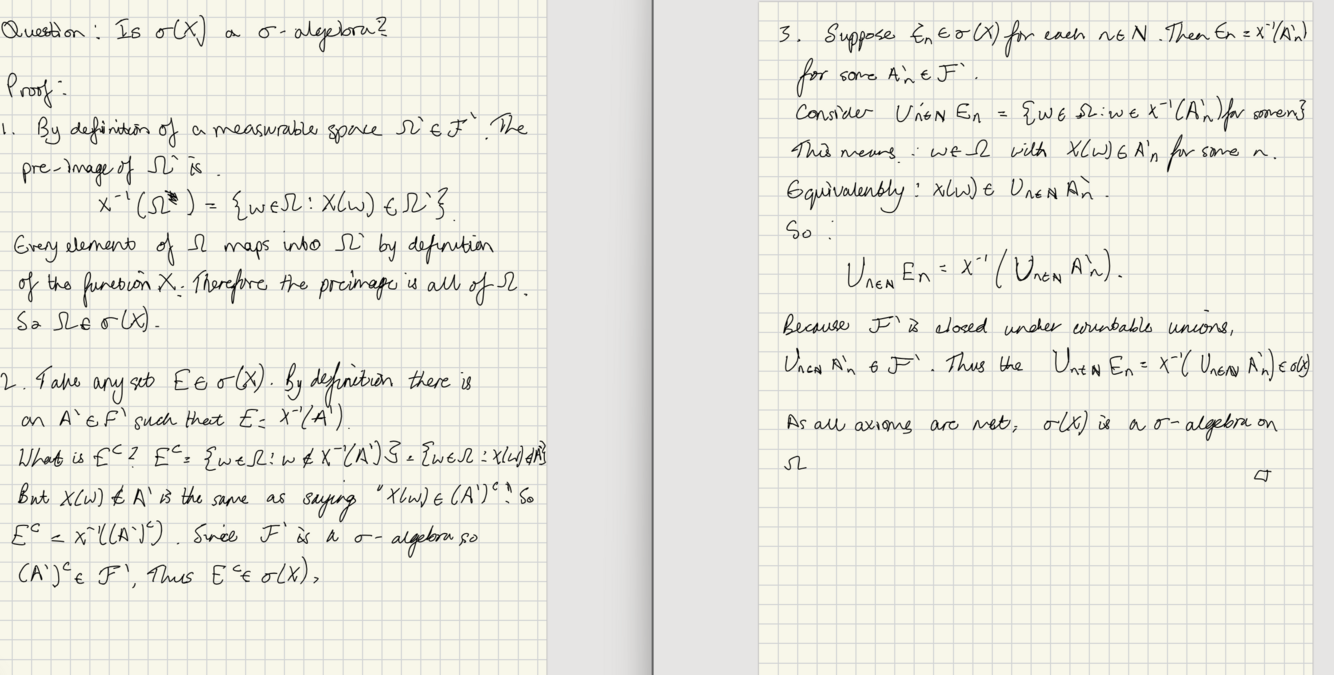 Question: Is σ(X) a σ-algebra?
Proof:
1. By definition of a measurable space Ω' ∈ F'. The
pre-image of Ω' is.
X⁻¹(Ω') = {ω∈Ω : X(ω) ∈ Ω'}.
Every element of Ω maps into Ω' by definition
of the function X. Therefore the preimage is all of Ω.
So Ω ∈ σ(X).
2. Take any set E ∈ σ(X). By definition there is
an A' ∈ F' such that E = X⁻¹(A').
What is Eᶜ? Eᶜ = {ω∈Ω : ω ∉ X⁻¹(A')} = {ω∈Ω : X(ω)∉A'}
But X(ω) ∉ A' is the same as saying "X(ω) ∈ (A')ᶜ". So
Eᶜ = X⁻¹((A')ᶜ). Since F' is a σ-algebra so
(A')ᶜ ∈ F', Thus Eᶜ ∈ σ(X),
3. Suppose Eₙ ∈ σ(X) for each n∈N. Then Eₙ = X⁻¹(A'ₙ)
for some A'ₙ ∈ F'.
Consider ∪n∈N Eₙ = {ω∈Ω : ω ∈ X⁻¹(A'ₙ) for some n}
This means : ω∈Ω with X(ω) ∈ A'ₙ for some n.
Equivalenbly : X(ω) ∈ ∪n∈N A'ₙ.
So :
∪n∈N Eₙ = X⁻¹(∪n∈N A'ₙ).
Because F' is closed under countable unions,
∪n∈N A'ₙ ∈ F'. Thus the ∪n∈N Eₙ = X⁻¹(∪n∈N A'ₙ) ∈ σ(X)
As all axioms are met, σ(X) is a σ-algebra on
Ω
□